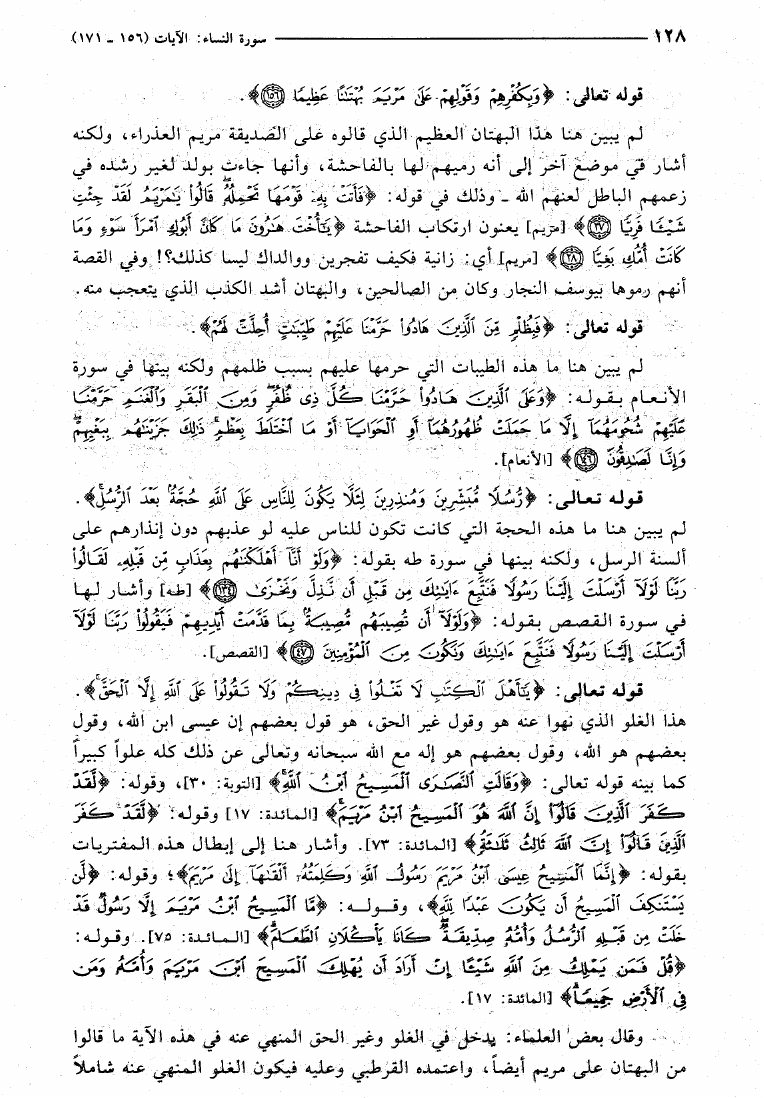 ١٢٨ سورة النساء: الآيات (١٥٦ ـ ١٧١)
قوله تعالى: ﴿وَبِكُفْرِهِمْ وَقَوْلِهِمْ عَلَىٰ مَرْيَمَ بُهْتَٰنًا عَظِيمًا ﴿١٥٦﴾﴾.
لم يبين هنا هذا البهتان العظيم الذي قالوه على الصديقة مريم العذراء، ولكنه
أشار في موضع آخر إلى أنه رميهم لها بالفاحشة، وأنها جاءت بولد لغير رشده في
زعمهم الباطل لعنهم الله ـ وذلك في قوله: ﴿فَأَتَتْ بِهِۦ قَوْمَهَا تَحْمِلُهُۥۖ قَالُوا۟ يَٰمَرْيَمُ لَقَدْ جِئْتِ
شَيْـًٔا فَرِيًّا ﴿٢٧﴾﴾ [مريم] يعنون ارتكاب الفاحشة ﴿يَٰٓأُخْتَ هَٰرُونَ مَا كَانَ أَبُوكِ ٱمْرَأَ سَوْءٍ وَمَا
كَانَتْ أُمُّكِ بَغِيًّا ﴿٢٨﴾﴾ [مريم] أي: زانية فكيف تفجرين ووالداك ليسا كذلك؟! وفي القصة
أنهم رموها بيوسف النجار وكان من الصالحين، والبهتان أشد الكذب الذي يتعجب منه.
قوله تعالى: ﴿فَبِظُلْمٍ مِّنَ ٱلَّذِينَ هَادُوا۟ حَرَّمْنَا عَلَيْهِمْ طَيِّبَٰتٍ أُحِلَّتْ لَهُمْ﴾.
لم يبين هنا ما هذه الطيبات التي حرمها عليهم بسبب ظلمهم ولكنه بينها في سورة
الأنعام بقوله: ﴿وَعَلَى ٱلَّذِينَ هَادُوا۟ حَرَّمْنَا كُلَّ ذِى ظُفُرٍۖ وَمِنَ ٱلْبَقَرِ وَٱلْغَنَمِ حَرَّمْنَا
عَلَيْهِمْ شُحُومَهُمَآ إِلَّا مَا حَمَلَتْ ظُهُورُهُمَآ أَوِ ٱلْحَوَايَآ أَوْ مَا ٱخْتَلَطَ بِعَظْمٍۚ ذَٰلِكَ جَزَيْنَٰهُم بِبَغْيِهِمْۖ
وَإِنَّا لَصَٰدِقُونَ ﴿١٤٦﴾﴾ [الأنعام].
قوله تعالى: ﴿رُّسُلًا مُّبَشِّرِينَ وَمُنذِرِينَ لِئَلَّا يَكُونَ لِلنَّاسِ عَلَى ٱللَّهِ حُجَّةٌۢ بَعْدَ ٱلرُّسُلِۚ﴾.
لم يبين هنا ما هذه الحجة التي كانت تكون للناس عليه لو عذبهم دون إنذارهم على
ألسنة الرسل، ولكنه بينها في سورة طه بقوله: ﴿وَلَوْ أَنَّآ أَهْلَكْنَٰهُم بِعَذَابٍ مِّن قَبْلِهِۦ لَقَالُوا۟
رَبَّنَا لَوْلَآ أَرْسَلْتَ إِلَيْنَا رَسُولًا فَنَتَّبِعَ ءَايَٰتِكَ مِن قَبْلِ أَن نَّذِلَّ وَنَخْزَىٰ ﴿١٣٤﴾﴾ [طه] وأشار لها
في سورة القصص بقوله: ﴿وَلَوْلَآ أَن تُصِيبَهُم مُّصِيبَةٌۢ بِمَا قَدَّمَتْ أَيْدِيهِمْ فَيَقُولُوا۟ رَبَّنَا لَوْلَآ
أَرْسَلْتَ إِلَيْنَا رَسُولًا فَنَتَّبِعَ ءَايَٰتِكَ وَنَكُونَ مِنَ ٱلْمُؤْمِنِينَ ﴿٤٧﴾﴾ [القصص].
قوله تعالى: ﴿يَٰٓأَهْلَ ٱلْكِتَٰبِ لَا تَغْلُوا۟ فِى دِينِكُمْ وَلَا تَقُولُوا۟ عَلَى ٱللَّهِ إِلَّا ٱلْحَقَّۚ﴾.
هذا الغلو الذي نهوا عنه هو وقول غير الحق، هو قول بعضهم إن عيسى ابن الله، وقول
بعضهم هو الله، وقول بعضهم هو إله مع الله سبحانه وتعالى عن ذلك كله علواً كبيراً
كما بينه قوله تعالى: ﴿وَقَالَتِ ٱلنَّصَٰرَى ٱلْمَسِيحُ ٱبْنُ ٱللَّهِۖ﴾ [التوبة: ٣٠]، وقوله: ﴿لَّقَدْ
كَفَرَ ٱلَّذِينَ قَالُوٓا۟ إِنَّ ٱللَّهَ هُوَ ٱلْمَسِيحُ ٱبْنُ مَرْيَمَۚ﴾ [المائدة: ١٧] وقوله: ﴿لَّقَدْ كَفَرَ
ٱلَّذِينَ قَالُوٓا۟ إِنَّ ٱللَّهَ ثَالِثُ ثَلَٰثَةٍ﴾ [المائدة: ٧٣]. وأشار هنا إلى إبطال هذه المفتريات
بقوله: ﴿إِنَّمَا ٱلْمَسِيحُ عِيسَى ٱبْنُ مَرْيَمَ رَسُولُ ٱللَّهِ وَكَلِمَتُهُۥٓ أَلْقَىٰهَآ إِلَىٰ مَرْيَمَ﴾؛ وقوله: ﴿لَّن
يَسْتَنكِفَ ٱلْمَسِيحُ أَن يَكُونَ عَبْدًا لِّلَّهِ﴾، وقوله: ﴿مَّا ٱلْمَسِيحُ ٱبْنُ مَرْيَمَ إِلَّا رَسُولٌ قَدْ
خَلَتْ مِن قَبْلِهِ ٱلرُّسُلُ وَأُمُّهُۥ صِدِّيقَةٌۖ كَانَا يَأْكُلَانِ ٱلطَّعَامَۗ﴾ [المائدة: ٧٥]. وقوله:
﴿قُلْ فَمَن يَمْلِكُ مِنَ ٱللَّهِ شَيْـًٔا إِنْ أَرَادَ أَن يُهْلِكَ ٱلْمَسِيحَ ٱبْنَ مَرْيَمَ وَأُمَّهُۥ وَمَن
فِى ٱلْأَرْضِ جَمِيعًاۗ﴾ [المائدة: ١٧].
وقال بعض العلماء: يدخل في الغلو وغير الحق المنهي عنه في هذه الآية ما قالوا
من البهتان على مريم أيضاً، واعتمده القرطبي وعليه فيكون الغلو المنهي عنه شاملاً